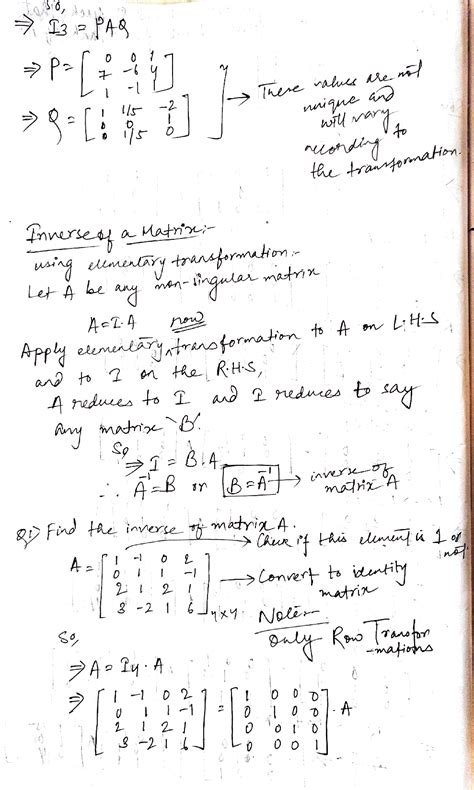 So,
⇒ I3 = PAQ
⇒ P = [ 0 0 1
7 -6 4
1 -1 1 ]
⇒ Q = [ 1 1/5 -2
0 0 1
0 1/5 0 ]
→ These values are not
unique and
will vary
according to
the transformation.
Inverse of a Matrix:-
using elementary transformation:-
Let A be any non-singular matrix
A = I.A now
Apply elementary transformation to A on L.H.S
and to I on the R.H.S,
A reduces to I and I reduces to say
any matrix 'B'.
So
⇒ I = B.A
∴ A⁻¹ = B or B = A⁻¹ → inverse of
matrix A
Q1) Find the inverse of matrix A.
→ Check if this element is 1 or
not.
A = [ 1 -1 0 2
0 1 1 -1
2 1 2 1
3 -2 1 6 ] 4x4
→ Convert to identity
matrix
Note:-
Only Row Transfor
-mations
So,
⇒ A = I4 . A
⇒ [ 1 -1 0 2 ] = [ 1 0 0 0 ] . A
0 1 1 -1 0 1 0 0
2 1 2 1 0 0 1 0
3 -2 1 6 0 0 0 1